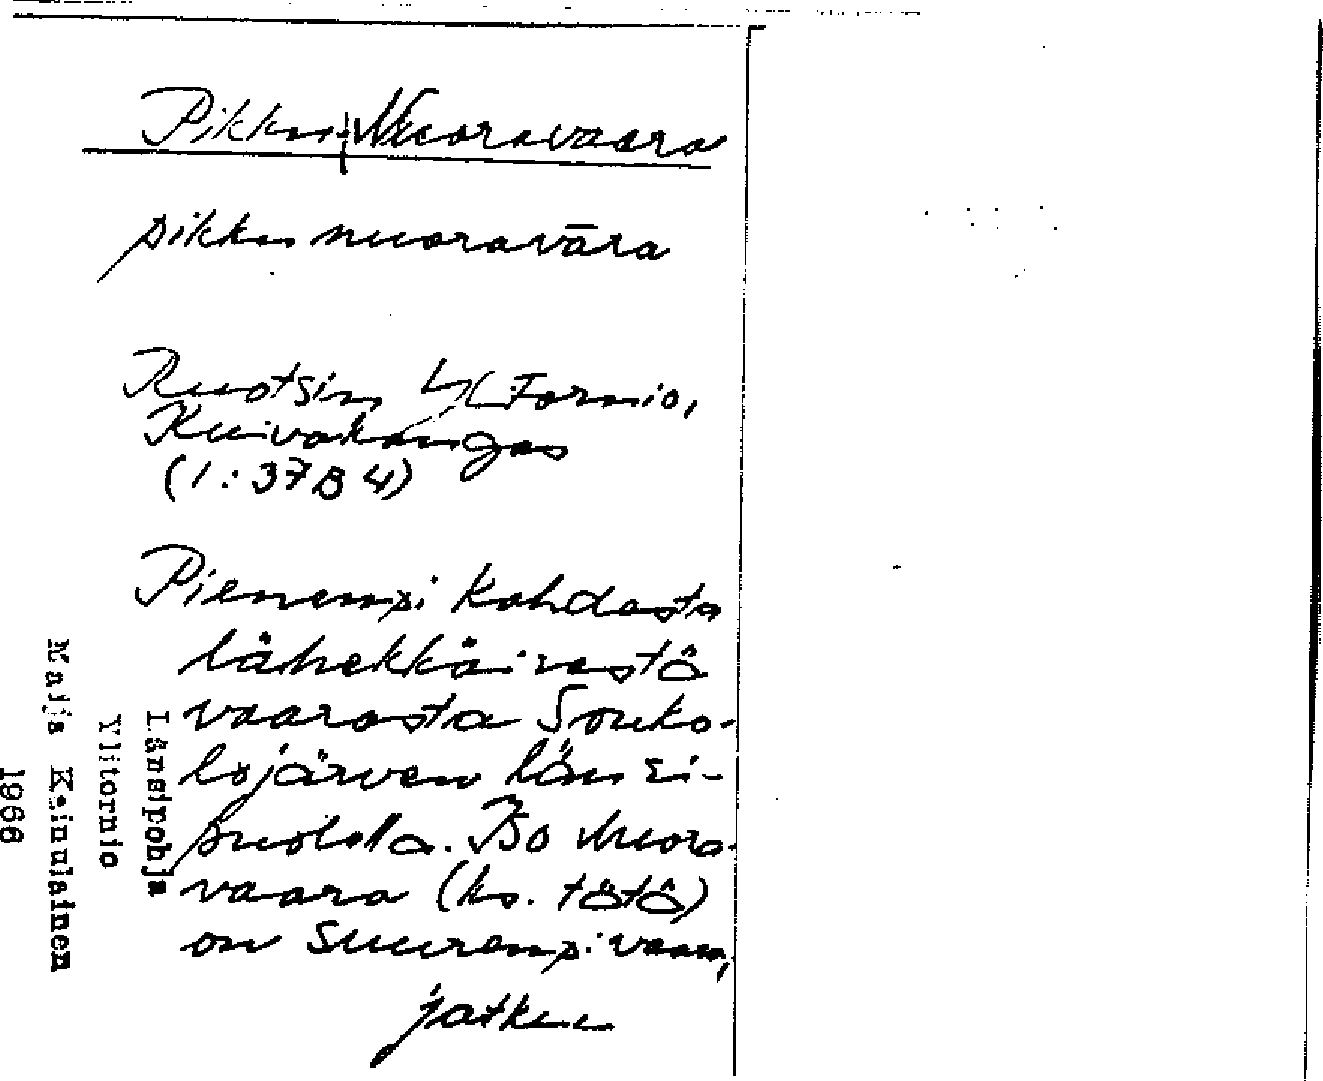 Pikku-Nuoravaara
pikku nuoravāra
Ruotsin Yli Tornio,
Kuivakangas
(1:37B4)
Pienempi kahdesta
lähekkäisestä
vaarasta Souko-
lojärven länsi-
puolella. Iso Nuora-
vaara (ks. tätä)
on suurempi vaara,
jatkuu
Länsipohja
Ylitornio
Maija Keinulainen
1966